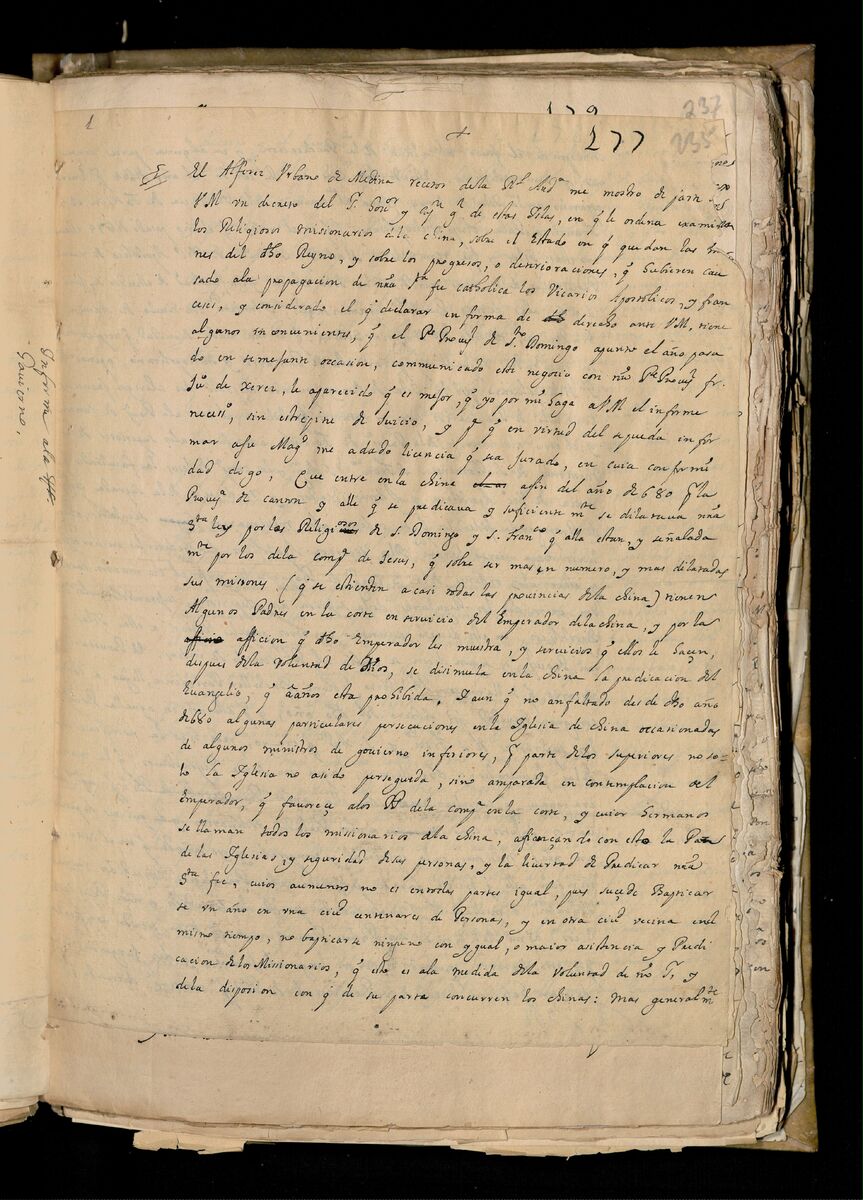 1
277
237
235
+
Informe a la
Gouierno,
El Alferez Vrbano de Medina recetor desta Rl Auda me mostro de parte
VM vn decreto del Sr. Gouor y Capn gl de estas Islas, en q̃ le ordena examine
los Religiosos misionarios dela china, sobre el Estado en q̃ quedan las
nes del dho Reyno, y sobre los progresos, o deterioraciones, q̃ hubieren cau
sado ala propagacion de nra sta fee catholica los Vicarios Apostolicos, y fran
ceses, y considerado el q̃ declarar en forma de derecho ante VM, tiene
algunos inconuenientes, q̃ el Pe Prouyl de Sto Domingo apunto el año pasa
do en semejante occasion, communicado este negocio con nro Pe Prouyl fr.
Ju. de xerez, le aparecido q̃ es mejor, q̃ yo por mi haga a VM el informe
necesso, sin estrepitu de Juicio, y pa q̃ en virtud del se pueda infor
mar asu Magd me adado licencia q̃ sea Jurado, en cuia conformi
dad digo, Que entre en la china afin del año de 680 por la
Prouya de canton y alle q̃ se predicaua y suficientemte se dilataua nra
sta ley por los Religiosos de S. Domingo y S. Franco q̃ alla estan, y señalada
mte por los dela compa de Jesus, q̃ sobre ser mas en numero, y mas dilatadas
sus missiones (q̃ se estienden a casi todas las prouincias dela china) tienen
Algunos Padres en la corte en seruicio del Emperador dela china, y por la
afficion q̃ dho Emperador les muestra, y seruicios q̃ ellos le hacen,
despues dela voluntad de Dios, se disimula en la china la predicacion del
Euangelio, q̃ a años esta prohibida. Y aun q̃ no an faltado desde dho año
de 680 algunas particulares persecuciones en la Iglesia de china occasionadas
de algunos ministros de gouierno inferiores, por parte delos superiores no so-
lo la Iglesia no asido perseguida, sino amparada en contemplacion del
Emperador, q̃ fauoreçe alos PP dela compa en la corte, y cuios hermanos
se llaman todos los missionarios dela china, afiançando con esto la Paz
de las Iglesias, y seguridad desus personas, y la liuertad de Predicar nra
sta fee, cuios aumentos no es en todas partes igual, pues suçede Baptiçar
se vn año en vna ciud centenares de Personas, y en otra ciud vecina enel
mismo tiempo, no baptiçarse ninguno con ygual, o maior asistencia y Predi
cacion delos Missionarios, q̃ esto es ala medida dela voluntad de nro Sr. y
dela disposion con q̃ de su parte concurren los chinas: mas generalmte